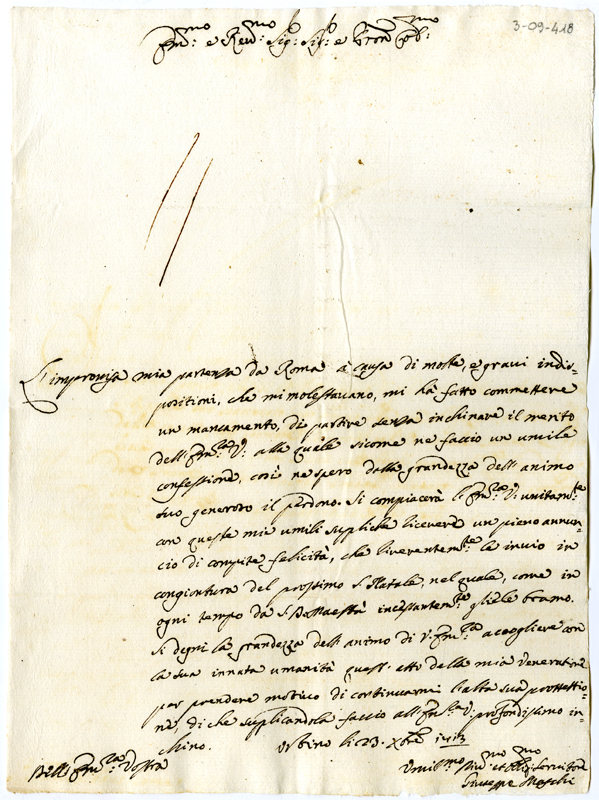 3-09-418
Em:mo e Rev:mo Sig: Sig: e Pron Col:mo
L'improvisa mia partenza da Roma à causa di molte, e gravi indis-
positioni, che mi molestavano, mi hà fatto commettere
un mancamento, di partire senza inchinare il merito
dell' Em:za V: alla quale sicome ne faccio un umile
confessione, così ne spero dalla grandezza dell' animo
suo generoso il perdono. Si compiacerà l'Em:za V: unitam:te
con queste mie umili supliche ricevere un pieno annun-
cio di compite felicità, che riverentem:te le invio in
congiontura del prossimo S. Natale, nel quale, come in
ogni tempo da S. D. Maestà incessantem:te gliele bramo.
Si degni la grandezza dell' animo di V: Em:za accogliere con
la sua innata umanità quest' atto della mia veneratione
per prendere motivo di continuarmi l'alta sua prottettio-
ne, di che suplicandola faccio all' Em:za V: profondissimo in-
chino. Urbino li 23. Xbre
Dell' Em:za Vostra
Umil:mo Div:mo et Obl:mo Servitore
Giuseppe Moschi